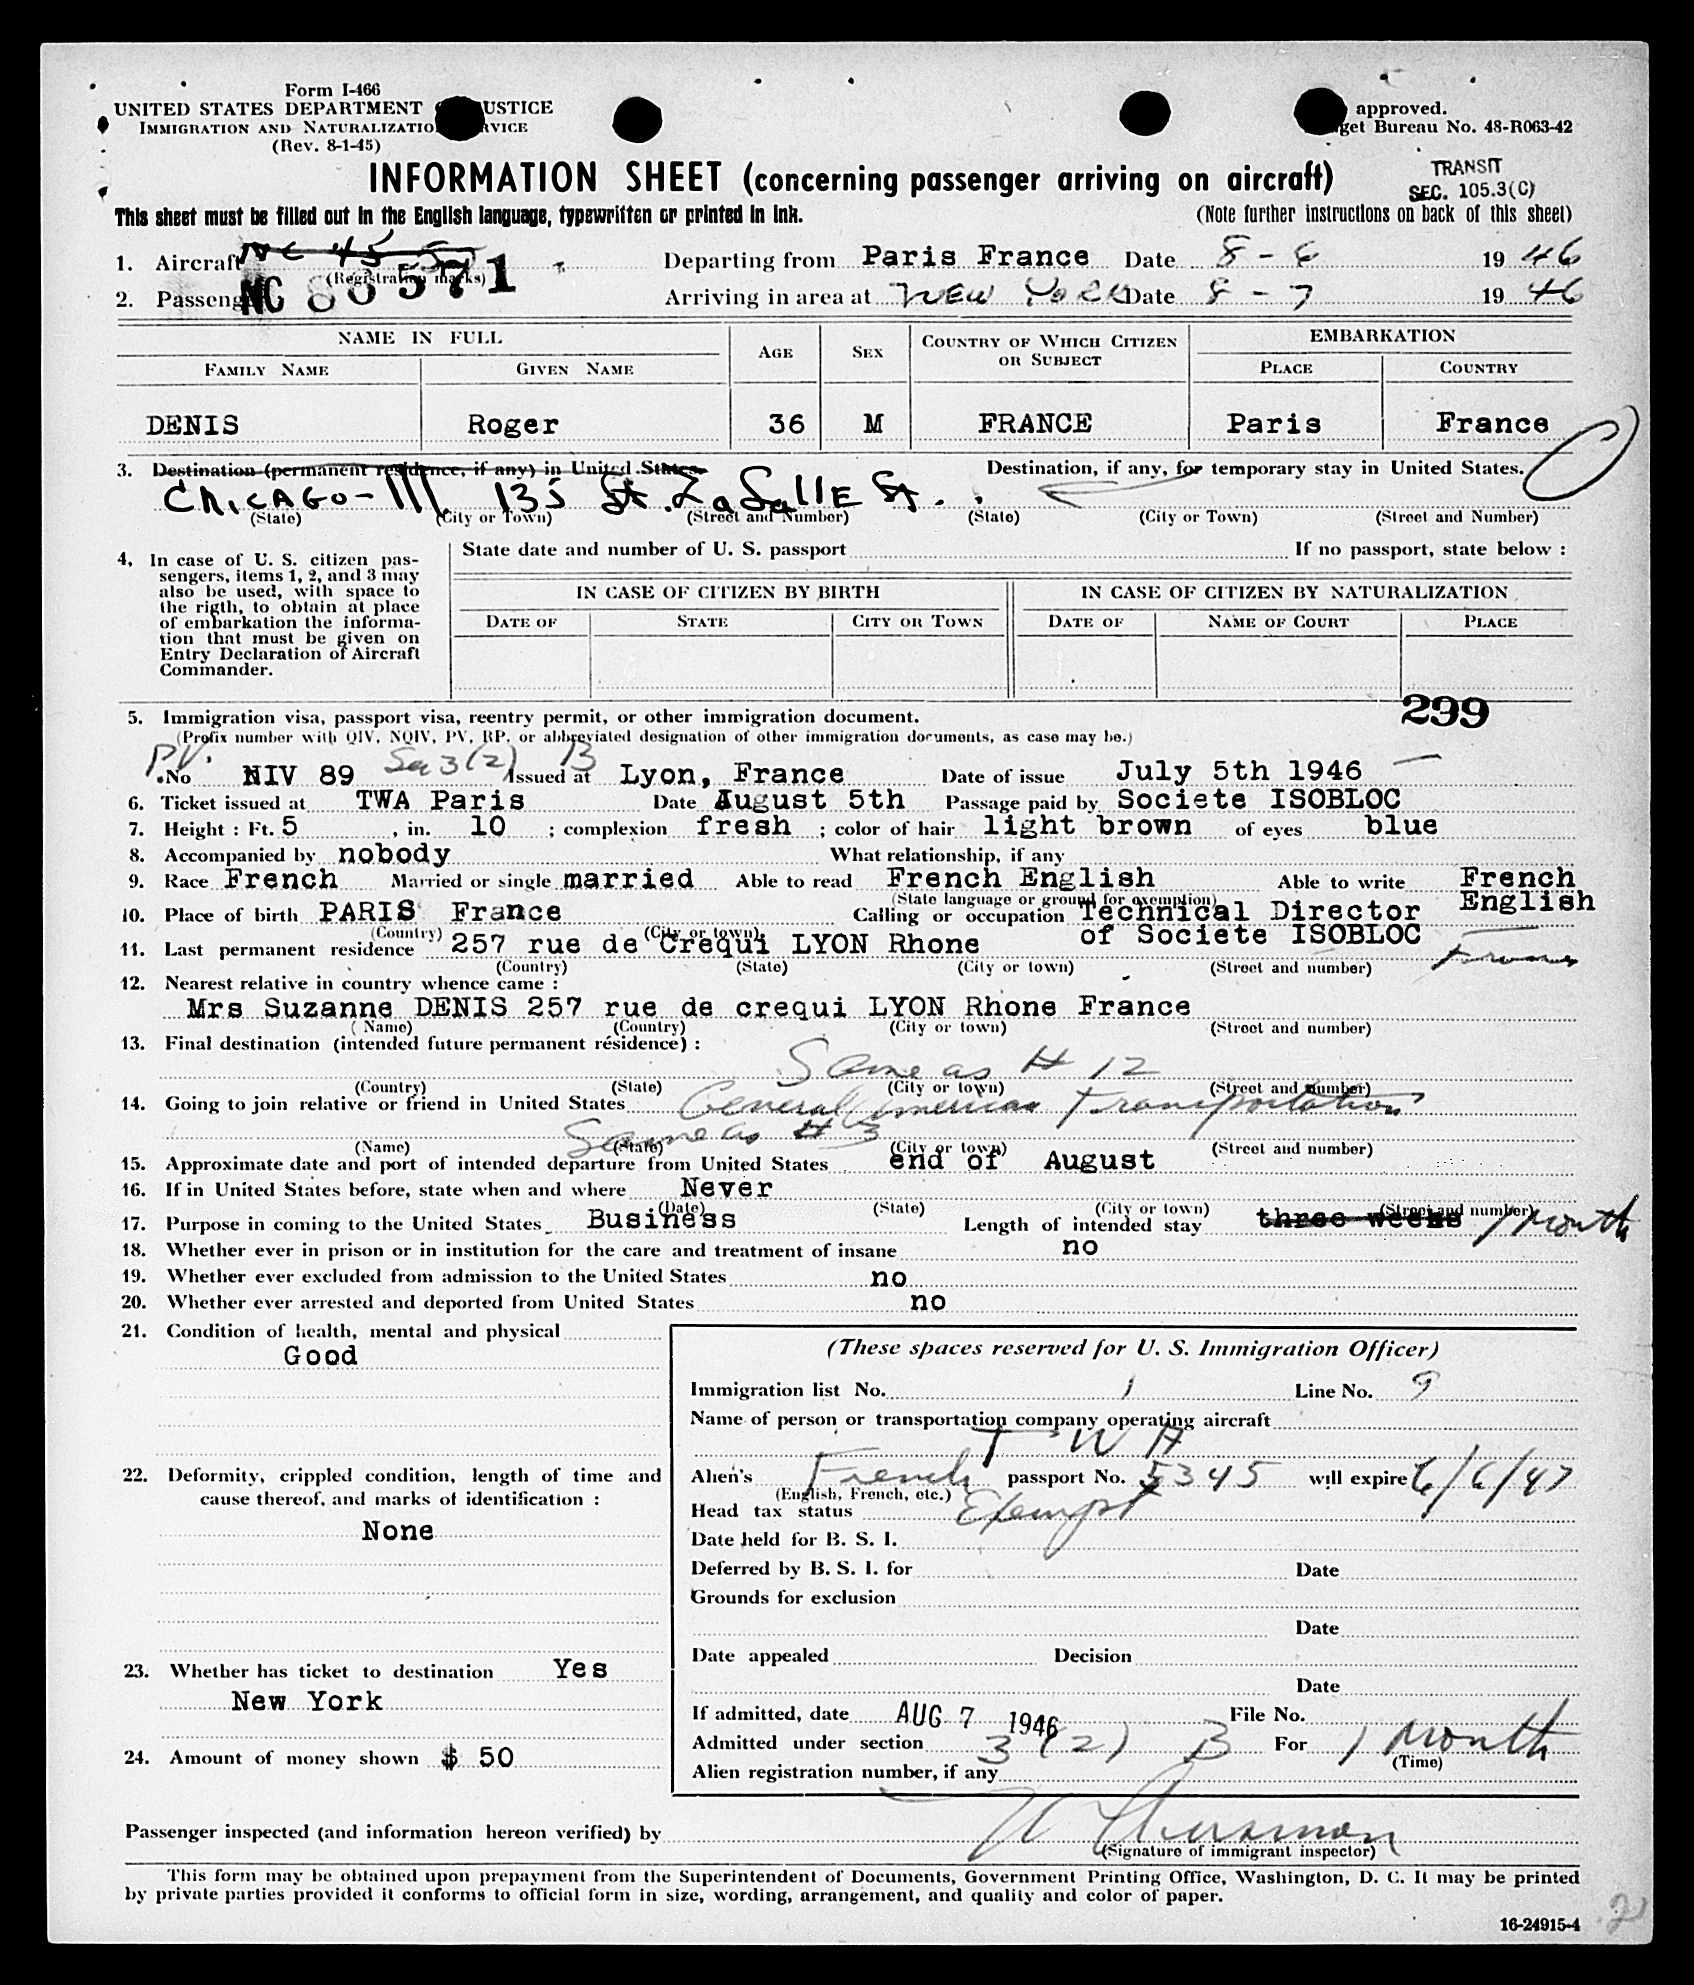 Form I-466
UNITED STATES DEPARTMENT USTICE
IMMIGRATION AND NATURALIZATIO RVICE
(Rev. 8-1-45)
approved.
get Bureau No. 48-R063-42
INFORMATION SHEET (concerning passenger arriving on aircraft)
TRANSIT
SEC. 105.3(C)
This sheet must be filled out in the English language, typewritten or printed in ink.
(Note further instructions on back of this sheet)
1. Aircraft NC 45 (Registration marks) Departing from Paris France Date 8-6 1946
2. Passeng NC 86571 Arriving in area at NEW YORK Date 8-7 1946
NAME IN FULL
FAMILY NAME GIVEN NAME AGE SEX COUNTRY OF WHICH CITIZEN OR SUBJECT EMBARKATION PLACE COUNTRY
DENIS Roger 36 M FRANCE Paris France
3. Destination (permanent residence, if any) in United States. Destination, if any, for temporary stay in United States.
CHICAGO-Ill. 135 St. LaSallE St.
(State) (City or Town) (Street and Number) (State) (City or Town) (Street and Number)
4. In case of U. S. citizen pas-
sengers, items 1, 2, and 3 may
also be used, with space to
the rigth, to obtain at place
of embarkation the informa-
tion that must be given on
Entry Declaration of Aircraft
Commander.
State date and number of U. S. passport If no passport, state below :
IN CASE OF CITIZEN BY BIRTH IN CASE OF CITIZEN BY NATURALIZATION
DATE OF STATE CITY OR TOWN DATE OF NAME OF COURT PLACE
299
5. Immigration visa, passport visa, reentry permit, or other immigration document.
(Prefix number with QIV, NQIV, PV, RP, or abbreviated designation of other immigration documents, as case may be.)
PV. No NIV 89 Sec 3(2) B Issued at Lyon, France Date of issue July 5th 1946
6. Ticket issued at TWA Paris Date August 5th Passage paid by Societe ISOBLOC
7. Height : Ft. 5 , in. 10 ; complexion fresh ; color of hair light brown of eyes blue
8. Accompanied by nobody What relationship, if any
9. Race French Married or single married Able to read French English Able to write French English
(State language or ground for exemption)
10. Place of birth PARIS France Calling or occupation Technical Director of Societe ISOBLOC
(Country) (City or town)
11. Last permanent residence 257 rue de Crequi LYON Rhone France
(Country) (State) (City or town) (Street and number)
12. Nearest relative in country whence came :
Mrs Suzanne DENIS 257 rue de crequi LYON Rhone France
(Name) (Country) (City or town) (Street and number)
13. Final destination (intended future permanent résidence) :
Same as # 12
(Country) (State) (City or town) (Street and number)
14. Going to join relative or friend in United States General American Transportation
Same as # 3
(Name) (State) (City or town) (Street and number)
15. Approximate date and port of intended departure from United States end of August
16. If in United States before, state when and where Never
(Date) (State) (City or town) (Street and number)
17. Purpose in coming to the United States Business Length of intended stay three weeks 1 month
18. Whether ever in prison or in institution for the care and treatment of insane no
19. Whether ever excluded from admission to the United States no
20. Whether ever arrested and deported from United States no
21. Condition of health, mental and physical
Good
22. Deformity, crippled condition, length of time and
cause thereof, and marks of identification :
None
23. Whether has ticket to destination Yes
New York
24. Amount of money shown $ 50
(These spaces reserved for U. S. Immigration Officer)
Immigration list No. 1 Line No. 9
Name of person or transportation company operating aircraft
TWA
Alien's French passport No. 5345 will expire 6/6/47
(English, French, etc.)
Head tax status Exempt
Date held for B. S. I.
Deferred by B. S. I. for Date
Grounds for exclusion
Date
Date appealed Decision
Date
If admitted, date AUG 7 1946 File No.
Admitted under section 3(2) B For 1 month
(Time)
Alien registration number, if any
Passenger inspected (and information hereon verified) by
(Signature of immigrant inspector)
This form may be obtained upon prepayment from the Superintendent of Documents, Government Printing Office, Washington, D. C. It may be printed
by private parties provided it conforms to official form in size, wording, arrangement, and quality and color of paper.
16-24915-4